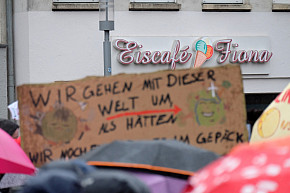 Eiscafé Fiona
WIR GEHEN MIT DIESER
WELT UM
ALS HÄTTEN
WIR NOCH IM GEPÄCK